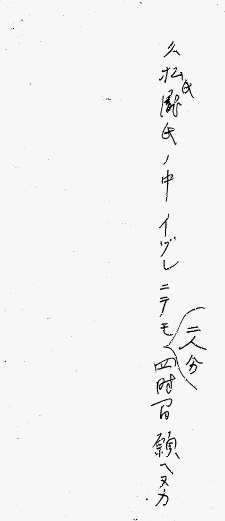 久松氏厨氏ノ中イヅレニテモ四時間願ヘヌカ
二人分